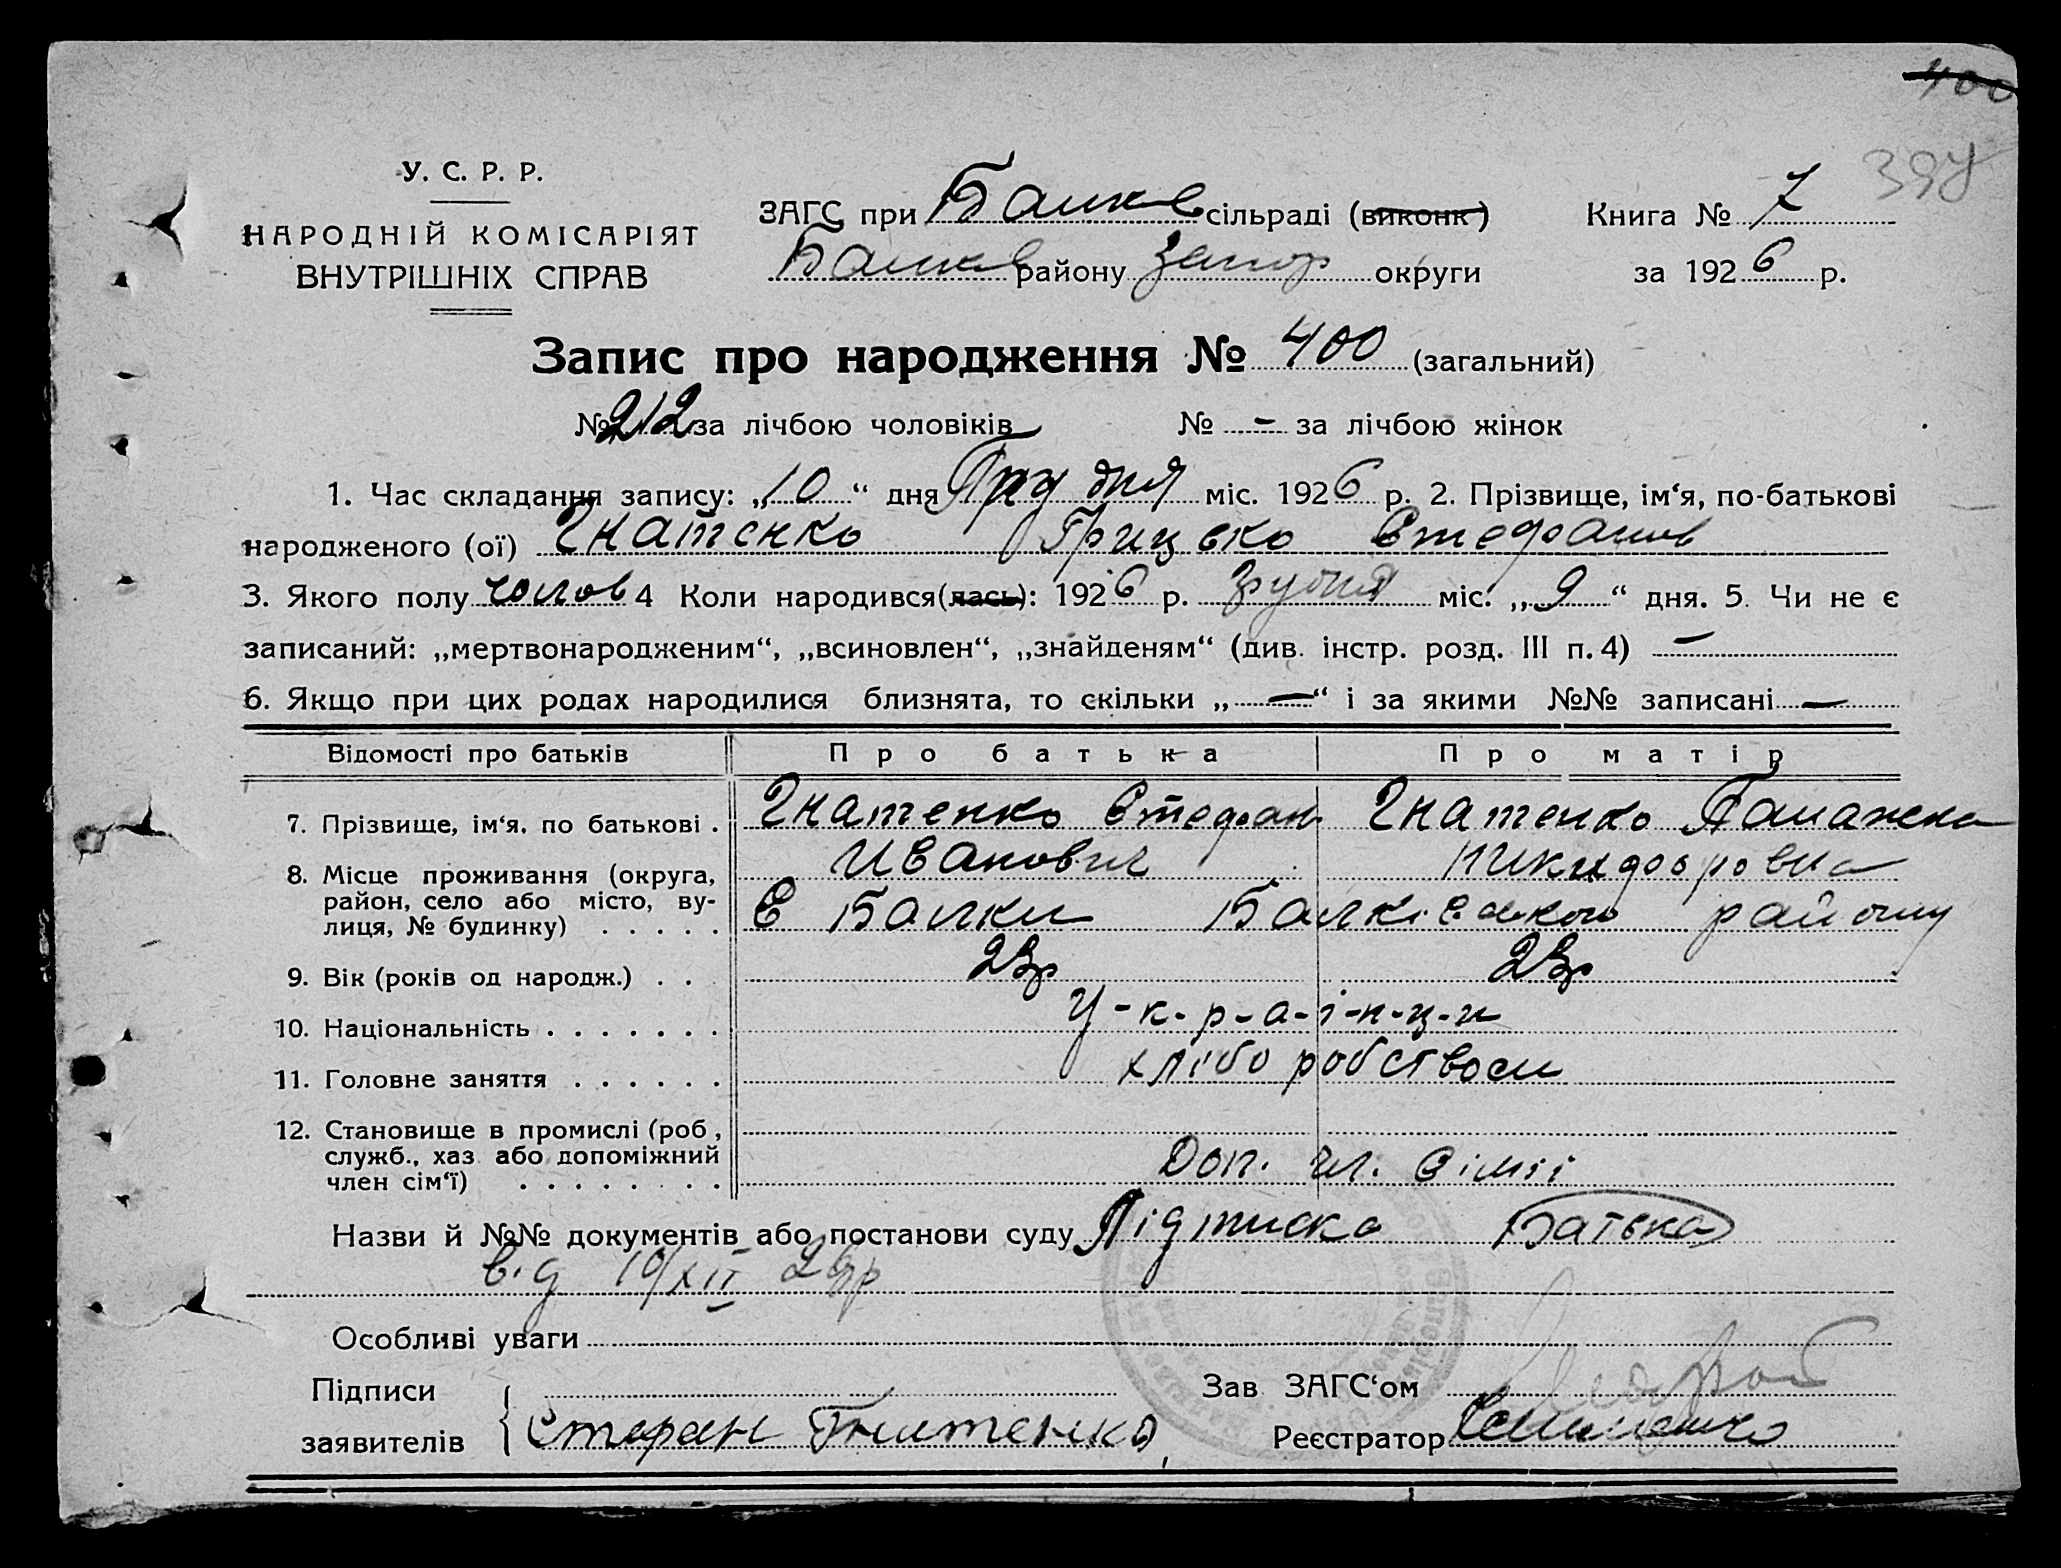 400
398
У. С. Р. Р.
НАРОДНІЙ КОМІСАРІЯТ
ВНУТРІШНІХ СПРАВ
ЗАГС при Балків сільраді (виконк)
Балків району Запор округи
Книга № 7
за 1926 р.
Запис про народження № 400 (загальний)
№ 212 за лічбою чоловіків № – за лічбою жінок
1. Час складання запису: „10“ дня Грудня міс. 1926 р. 2. Прізвище, ім‘я, по-батькові
народженого (ої) Гнатенко Грицько Стефанов
3. Якого полу чолов 4 Коли народився(лась): 1926 р. грудня міс. „9“ дня. 5. Чи не є
записаний: „мертвонародженим“, „всиновлен“, „знайденям“ (див. інстр. розд. III п. 4) –
6. Якщо при цих родах народилися близнята, то скільки „–“ і за якими №№ записані –
Відомості про батьків Про батька Про матір
7. Прізвище, ім‘я, по батькові . Гнатенко Стефан Гнатенко Палажка
Иванович Никифоровна
8. Місце проживання (округа,
район, село або місто, ву-
лиця, № будинку) . . . . . С Балки Балківського району
9. Вік (років од народж.) . . 23р 23р
10. Національність . . . . . . . У-к-р-а-і-н-ц-и
11. Головне заняття . . . . . . хліборобством
12. Становище в промислі (роб,
служб., хаз. або допоміжний
член сім‘ї) . . . . . . . . Доп. чл. сімії
Назви й №№ документів або постанови суду Підписка Батька
від 10/XII 26р
Особливі уваги
Підписи
заявителів Стефан Гнатенко
Зав ЗАГС‘ом
Реєстратор